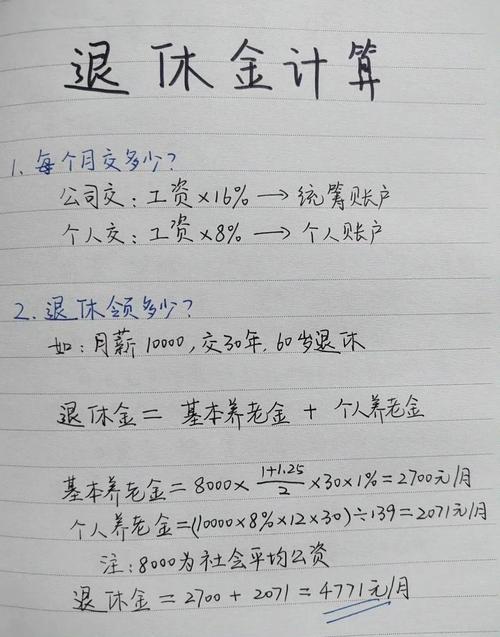 退休金计算
1. 每个月交多少?
公司交: 工资×16% → 统筹账户
个人交: 工资×8% → 个人账户
2. 退休领多少?
如: 月薪10000, 交30年, 60岁退休
退休金 = 基本养老金 + 个人养老金
基本养老金 = 8000 × (1+1.25)/2 × 30 × 1% = 2700元/月
个人养老金 = (10000×8%×12×30) ÷ 139 = 2071元/月
注: 8000为社会平均工资
退休金 = 2700 + 2071 = 4771元/月